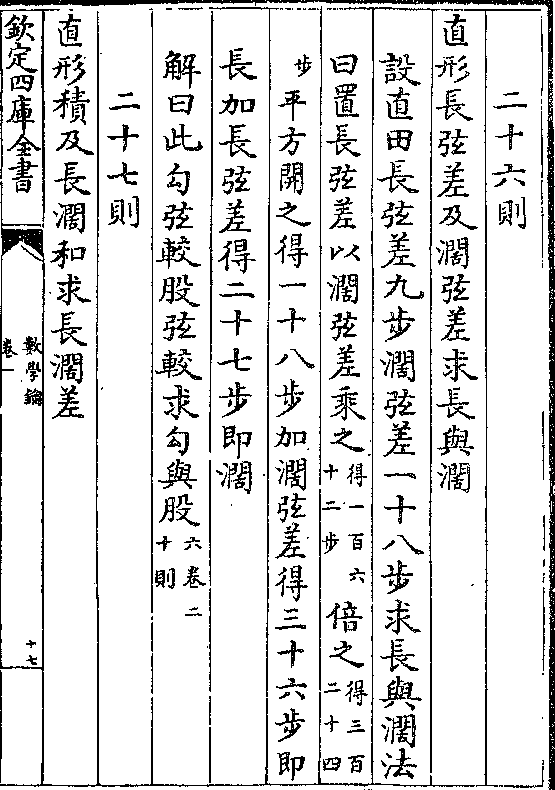 二十六則
直形長弦差及濶弦差求長與濶
設直田長弦差九步濶弦差一十八步求長與濶法
曰置長弦差以濶弦差乘之得一百六十二步倍之得三百二十四
步平方開之得一十八步加濶弦差得三十六步即
長加長弦差得二十七步即濶
解曰此勾弦較股弦較求勾與股六卷二十則
二十七則
直形積及長濶和求長濶差
欽定四庫全書
數學鑰
卷一
十七